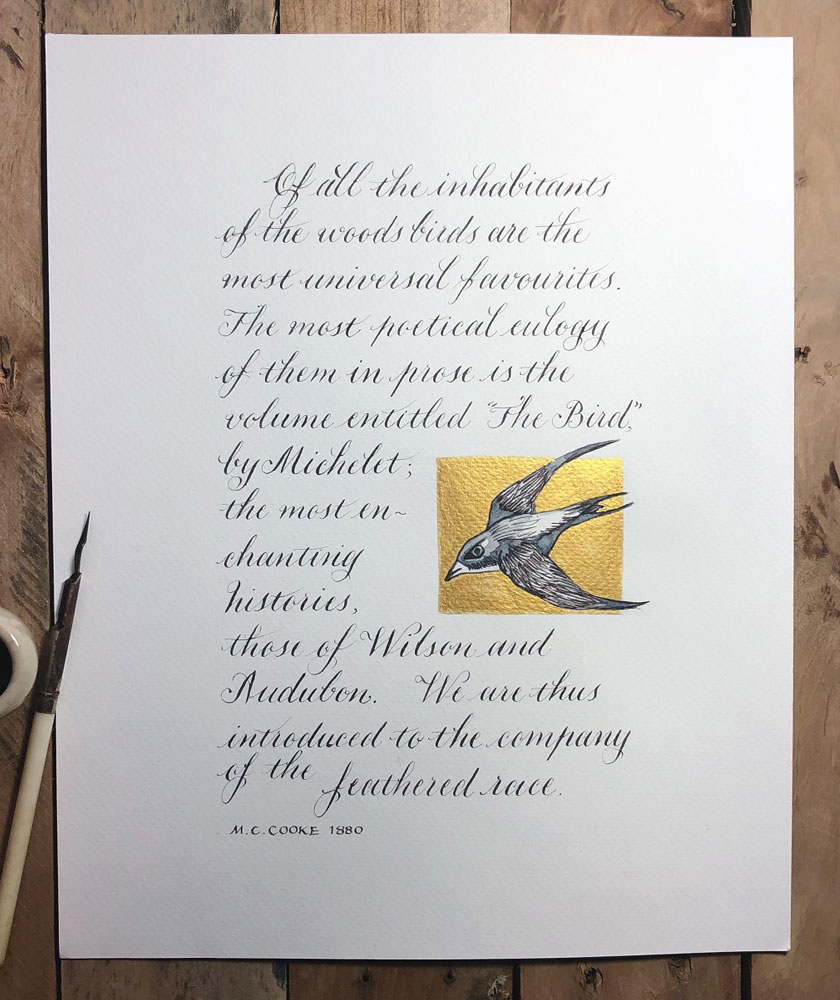 Of all the inhabitants
of the woods birds are the
most universal favourites.
The most poetical eulogy
of them in prose is the
volume entitled "The Bird,"
by Michelet;
the most en~
chanting
histories,
those of Wilson and
Audubon. We are thus
introduced to the company
of the feathered race.
M.C. COOKE 1880